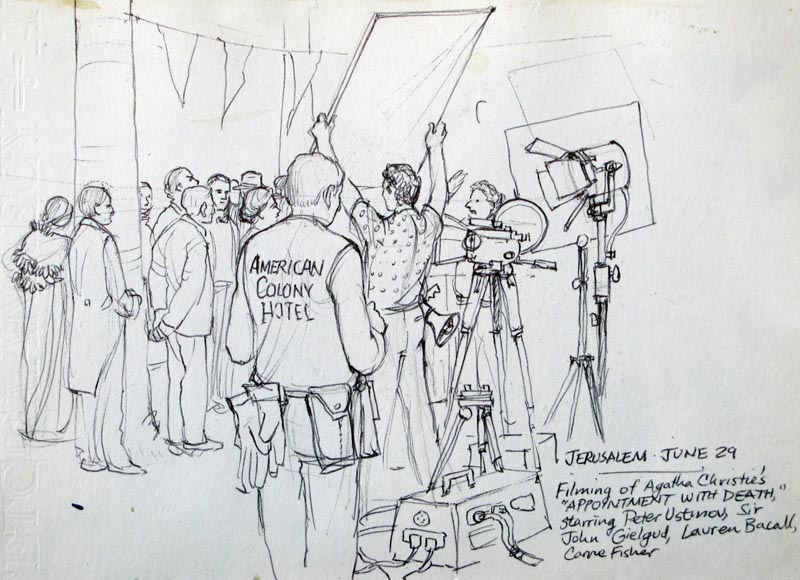 AMERICAN
COLONY
HOTEL
JERUSALEM · JUNE 29
Filming of Agatha Christie's
"APPOINTMENT WITH DEATH,"
starring Peter Ustinov, Sir
John Gielgud, Lauren Bacall,
Carrie Fisher